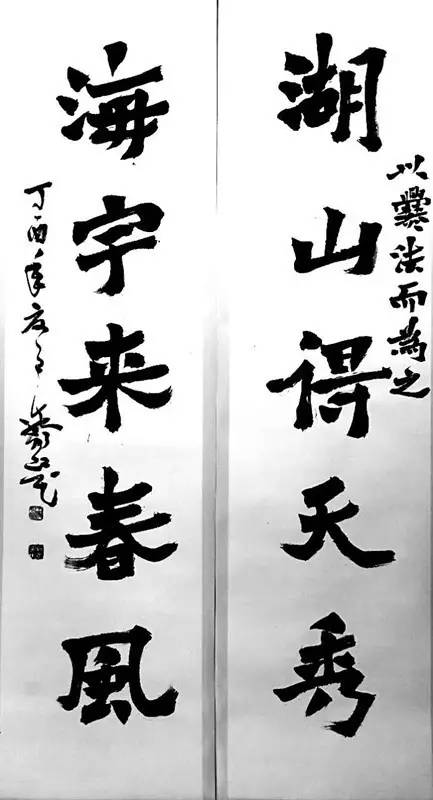 湖山得天秀
以爨法而為之
海宇来春风
丁酉年夏月